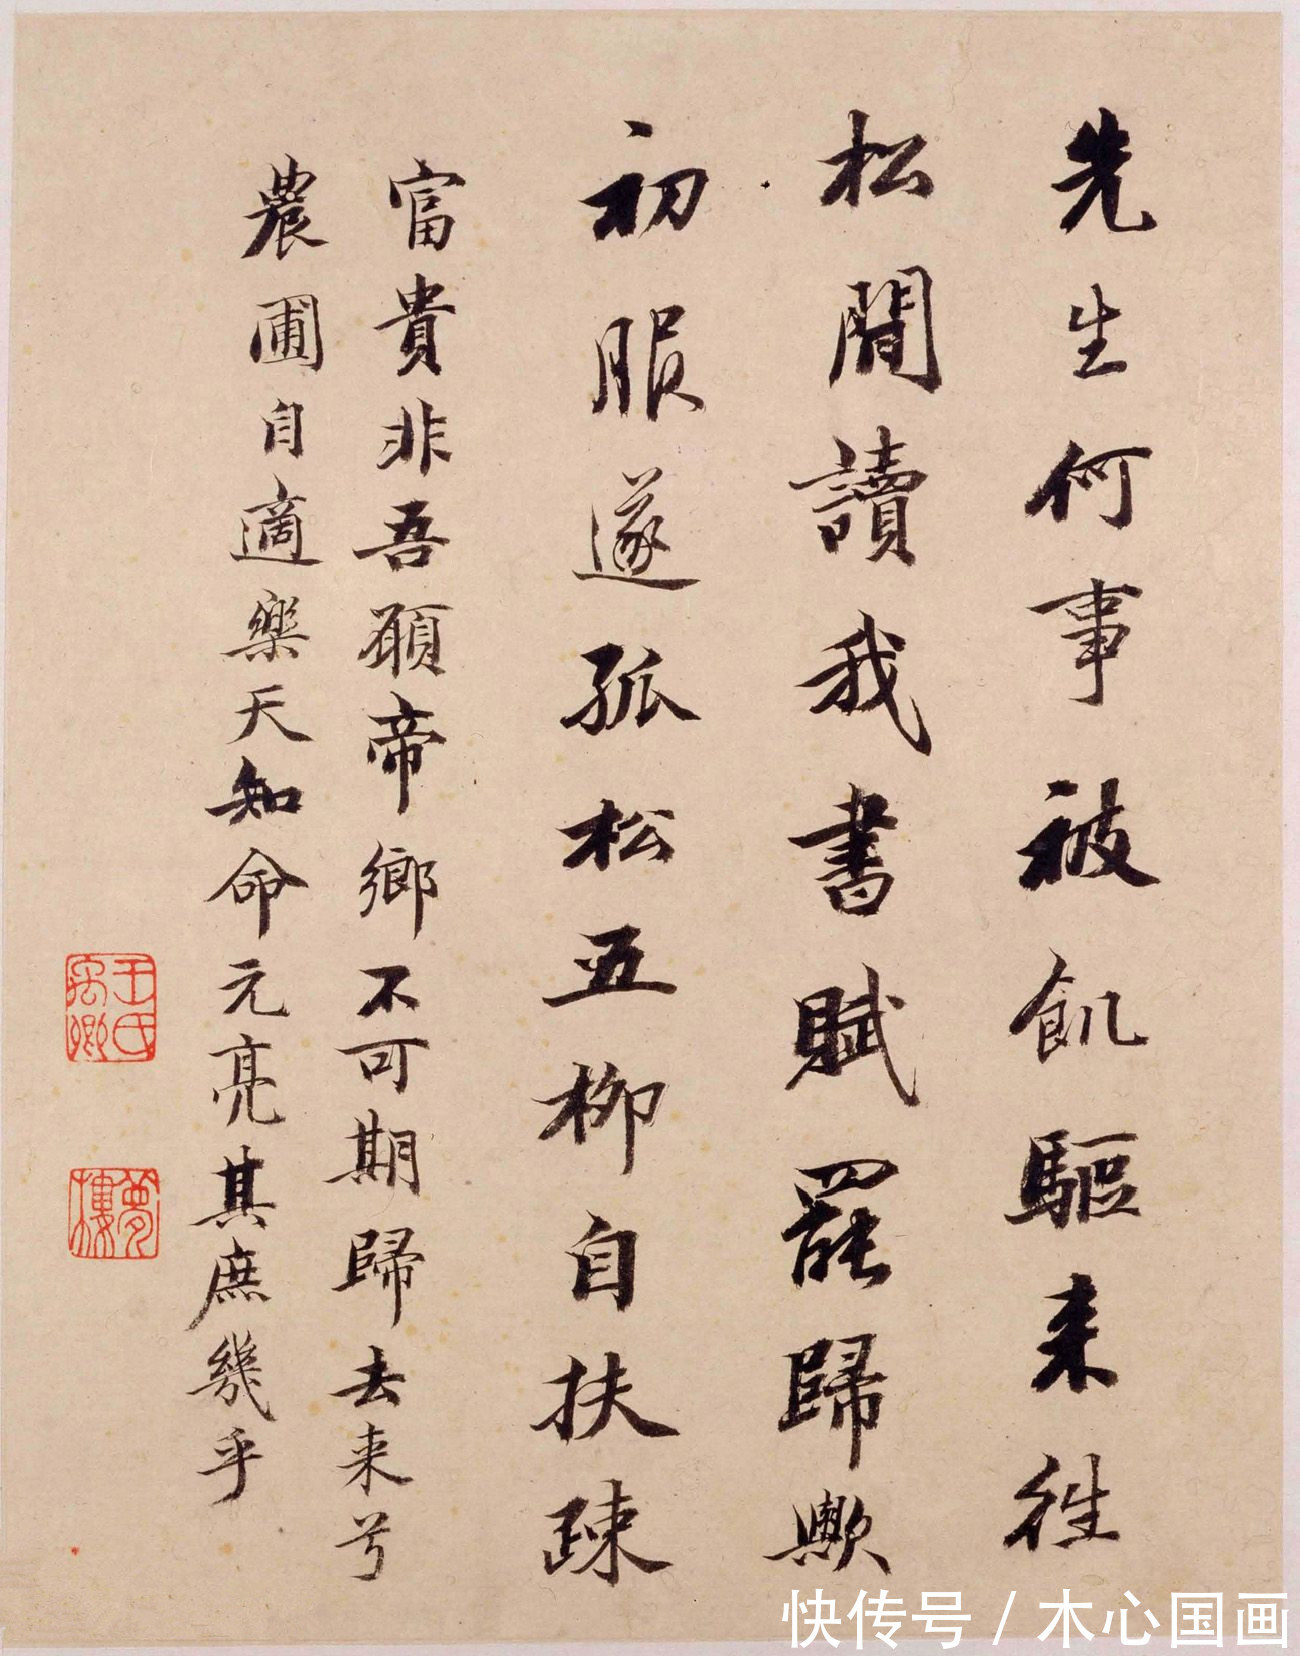 先生何事被飢驅来徃
松間讀我書賦罷歸歟
初服遂孤松五柳自扶疎
富貴非吾願帝鄉不可期歸去来兮
農圃自適樂天知命元亮其庶幾乎
王氏禹卿
夢樓
快传号 / 木心国画